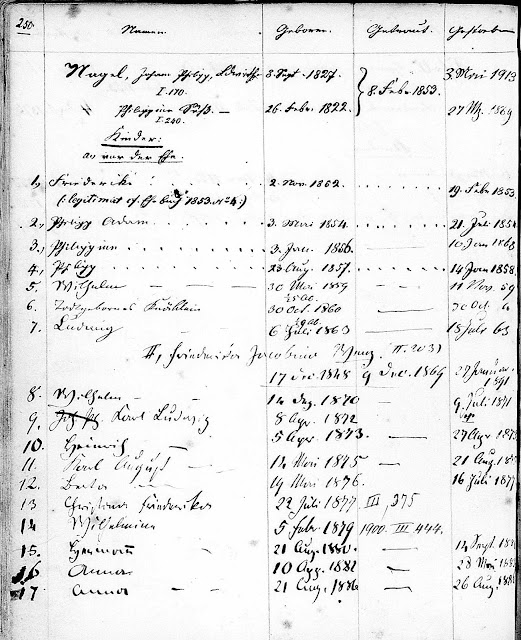 250.
Namen. Geboren. Getraut. Gestorben
Nagel, Johann Philipp, 8. Sept. 1827. 8. Febr. 1853. 3. Mai 1913
I.170.
" Philippine Süß. — 26. Febr. 1822. 27
I.240.
Kinder:
a, vor der Ehe.
1, Friederike 2. Nov. 19. Febr 1853.
(:legitimirt cf. Ehebuch 1853. No 4:)
2., Philipp Adam 3. Mai 1854. 21. Juli 1854
3., Philippine 3. Jan. 10. Jan
4., Philipp 23 Aug. 1857. 14 Jan 1858.
5. Wilhelm — 30 Mai 1859 11 Nov. 59
6. Todtgebornes Knäblein 30 Oct. 1860 30 Oct.
7. Ludwig — 6 Juli 1863 — 18 Juli 63
II, Friederika Jacobina (II.203)
17 Dec. 1848 9 Dec. 1869 Januar 1891
8. Wilhelm — — 14 Dez. 1870 — 9 Juli 1871
9. Karl Ludwig 8 Apr. 1872
10. Heinrich — 5 Apr. 1873. — 27 Apr. 1873
11. Karl August — 12 Mai 1875 — 21 Aug.
12. Berta — 19 Mai 1876. — 16 Juli 1877
13 Christina Friederika 22 Juli 1877 III, 275
14 Wilhelmine 5 Febr. 1879 1900. III 444.
15. Hermann — 21 Aug. 1880. — 14 Sept.
16 Anna — 10 Apr. 1882 — 28 Mai
17 Anna — — 21 Aug. 1886 — 26 Aug.